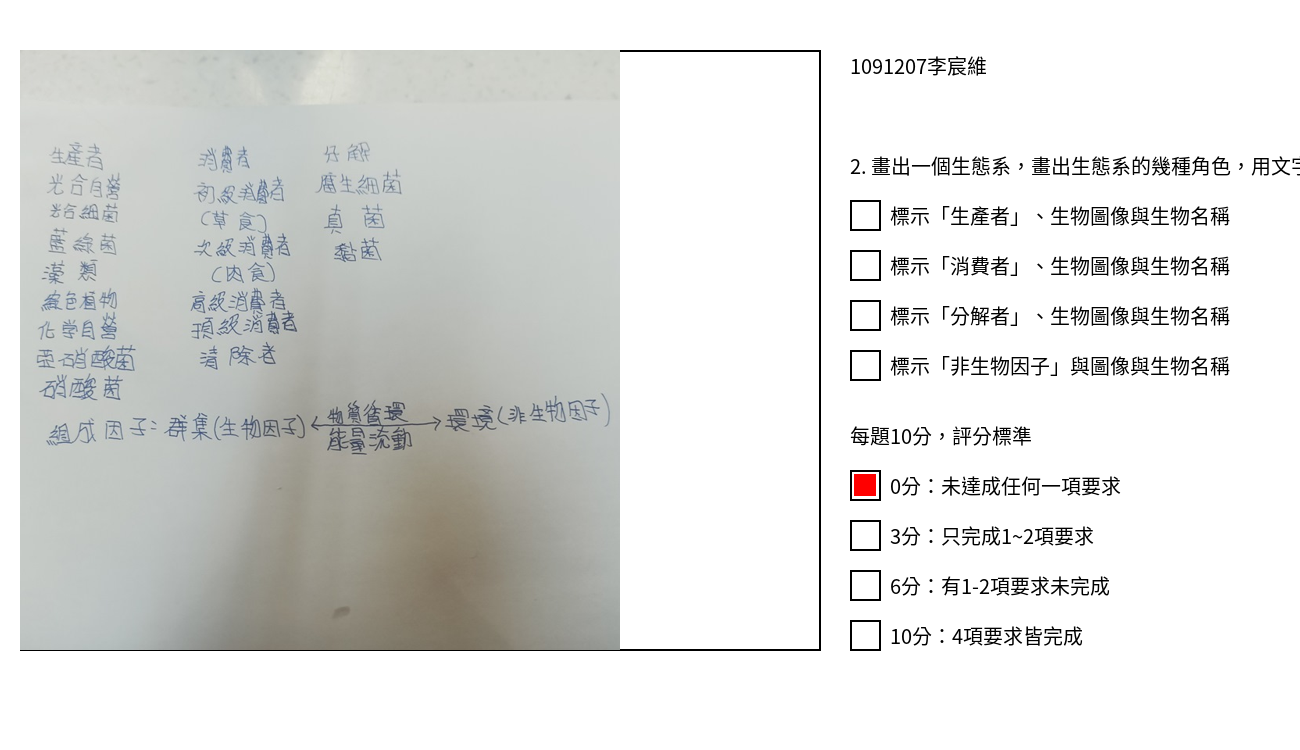 生產者
光合自營
光合細菌
藍綠菌
藻類
綠色植物
化学自營
亞硝酸菌
硝酸菌
消費者
初級消費者
(草食)
次級消費者
(肉食)
高級消費者
頂級消費者
清除者
分解
腐生細菌
真菌
黏菌
組成因子:群集(生物因子)
物質循環
能量流動
環境(非生物因子)
1091207李宸維
2. 畫出一個生態系，畫出生態系的幾種角色，用文字
標示「生產者」、生物圖像與生物名稱
標示「消費者」、生物圖像與生物名稱
標示「分解者」、生物圖像與生物名稱
標示「非生物因子」與圖像與生物名稱
每題10分，評分標準
0分：未達成任何一項要求
3分：只完成1~2項要求
6分：有1-2項要求未完成
10分：4項要求皆完成